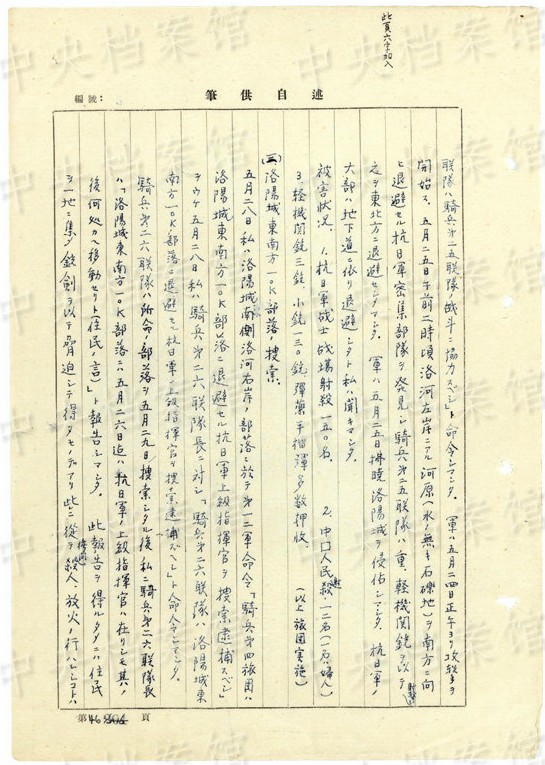 此頁六字加入
述自供筆
編號：
联隊ハ騎兵第二五联隊ノ战斗ニ協力スベシ」ト命令シマシタ。 軍ハ五月二四日正午ヨリ攻撃ヲ
開始ス、五月二五日午前二時頃洛河左岸ニアル河原（水ノ無キ石礫地）ヲ南方ニ向
ヒ退避セル抗日軍密集部隊ヲ発見シ騎兵第二五联隊ハ重、軽機関銃ヲ以テ射撃シ
之ヲ東北方ニ退避セシメマシタ。 軍ハ五月二五日拂曉洛陽城ヲ侵佔シマシタ。 抗日軍ノ
大部ハ地下道ニ依リ退避シタト私ハ聞キマシタ。
被害状况 1、抗日軍战士战場射殺一五〇名、 2、中国人民 殺一二名（一名ハ婦人）
3、軽機関銃三銃、小銃一三〇銃弾藥手榴弾多数押收 （以上旅団実施）
（三）洛陽城東南方一〇K部落ノ捜索、
五月二八日私ハ洛陽城南側洛河右岸ノ部落ニ於テ第一二軍命令「騎兵第四旅団ハ
洛陽城東南方一〇K部落ニ退避セル抗日軍上級指揮官ヲ捜索逮捕スベシ」
ヲウケ五月二八日私ハ騎兵第二六联隊長ニ対シ「騎兵第二六联隊ハ洛陽城東
南方一〇K部落ニ退避セル抗日軍ノ上級指揮官ヲ捜索逮捕スベシ」ト命令シマシタ。
騎兵第二六联隊ハ所命ノ部落ヲ五月二九日捜索シタル後私ニ騎兵第二六联隊長
ハ「洛陽城東南方一〇K部落ニハ五月二六日迄ハ抗日軍ノ上級指揮官ハ在リシモ其ノ
後何処カヘ移動セリト（住民ノ言）」ト報告シマシタ。 此報告ヲ得ルタメニハ住民
ヲ一地ニ集メ銃剣ヲ以テ脅迫シテ得タモノデアリ此ニ従ヒ殺人、放火ノ行ハレシコトハ
第46頁